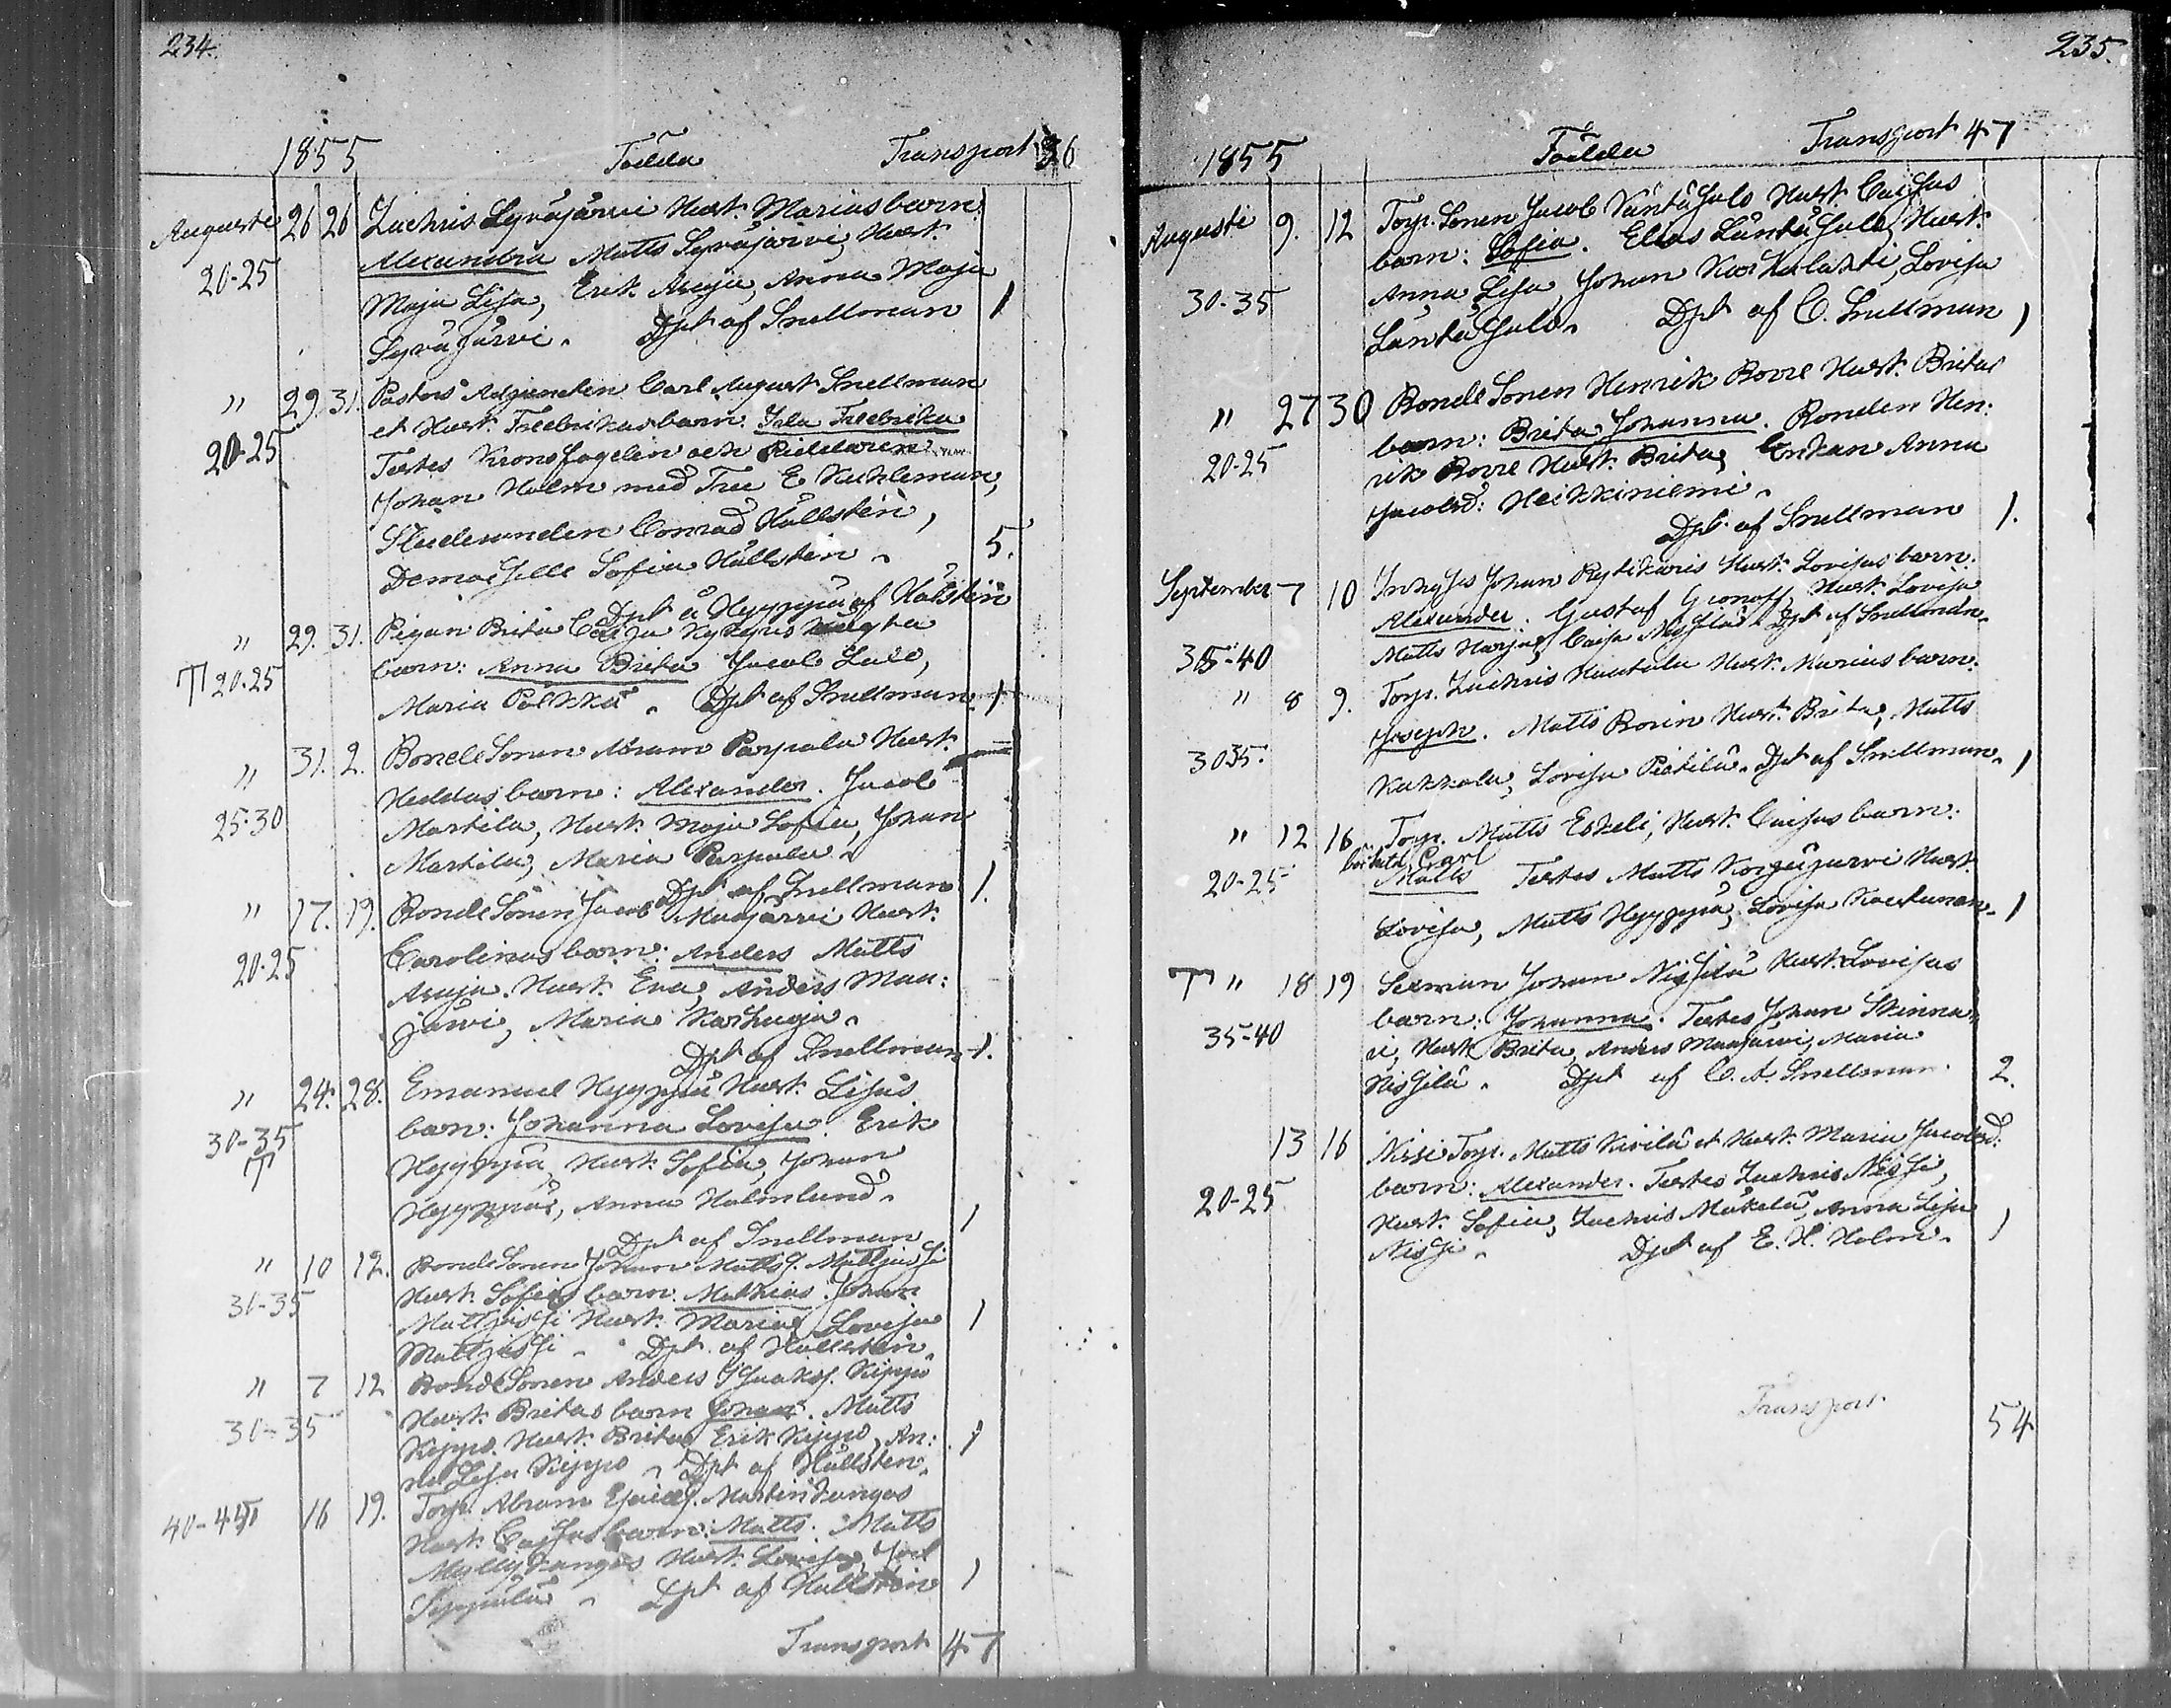 234.
1855 Födda Transport 36
Augusti 26 26 Zachris Syväjärvi Hust. Marias barn:
20-25 Alexandra Matts Syväjärvi, Hust.
Maja Lisa, Erik Anuja, Anna Maja
Syväjärvi. Dpt af Snellman 1
" 29. 31. Pastors Adjuncten Carl August Snellman
20-25 et Hust. Fredrikas barn: Ida Fredrika
Testes Kronofogden och Riddaren
Johan Holm med Fru E Kuhleman,
Studeranden Conrad Hällsten,
Demoiselle Sofia Hällsten. 5.
Dpt á Hyypyä af Hällsten
" 29. 31. Pigan Brita Caisa
T 20-25 barn: Anna Brita Jacob Lalo,
Maria Pälkkä. Dpt af Snellman 1
" 31. 2. BondeSonen Abram Parpala Hust.
25-30 Heddas barn: Alexander. Jacob
Martila, Hust. Maja Sofia, Johan
Martila, Maria Parpala.
Dpt af Snellman 1.
" 17. 19. BondeSonen Jacob Maajärvi Hust.
20-25 Carolinas barn: Anders Matts
Hust. Eva, Anders Maa:
järvi, Maria Karhuga.
Dpt af Snellman 1.
" 24. 28. Emanuel Hyyppiä Hust. Lisas
30-35 barn: Johanna Lovisa. Erik
T Hyyppiä Hust. Sofia, Johan
Hyyppiä, Anna Holmlund.
Dpt af Snellman 1
" 10 12. BondeSonen Johan Mattss. Mattjussi
31-35 Hust. Sofias barn: Mathias. Johan
Hust. Maria, Lovisa 1
Dpt. af Hällsten.
" 7 12 BondeSonen Anders Isaakss. Kippo
31-35 Hust. Britas barn Johan. Matts
Kippo. Hust. Brita, Erik Kippo, An: 1
na Lisa Kippo. Dpt af Hällsten.
40-45 16 19. Torp. Abram Martinkangas
Hust. Caisas barn: Matts. Matts
Hust. Lovisa, Joel
Seppälä. Dpt af Hällsten 1
Transport 47
235.
1855 Födda Transport 47
Augusti 9. 12 Torp. Sonen Jacob Käntäsalo Hust. Caisas
barn: Sofia. Elias Läntäsalo, Hust.
30-35 Anna Lisa, Johan Korkalahti, Lovisa
Läntäsalo. Dpt af C. Snellman 1
" 27 30 BondeSonen Henrik Bovre Hust. Britas
20-25 barn: Brita Johanna. Bonden Hen:
rik Bovre Hust. Brita, Enkan Anna
Jacobsd: Heikkiniemi.
Dpt af Snellman 1.
September 7 10 Inhyses Johan Rytikäris Hust. Lovisas barn:
Alexander. Gustaf Gronoff, Hust. Lovisa
35-40 Matts Harju, Caisa Nissilä. Dpt af Snellman.
" 8 9. Torp. Zachris Hautala Hust. Marias barn:
Joseph. Matts Rovin Hust. Brita, Matts
30 35. Kakkola, Lovisa Pietilä. Dpt af Snellman. 1
" 12 16. Torp. Matts Eskeli, Hust. Caisas barn:
Carl
20-25 Matts Testes Matts Korpijärvi Hust.
Lovisa, Matts Hyyppiä, Lovisa 1
T " 18 19 Sexman Johan Nissilä Hust. Lovisas
barn: Johanna. Testes Johan Skinna-
35-40 ri, Hust. Brita, Anders Maajärvi, Maria
Nissilä. Dpt af C. A. Snellman. 2.
13 16 Nisse Torp. Matts Kivilä et Hust. Maria Jacobsd:
20-25 barn: Alexander. Testes Zachris Nissi,
Hust. Sofia, Zachris Mäkelä, Anna Lisa
Nissi. Dpt af E. H. Holm. 1
Transport 54